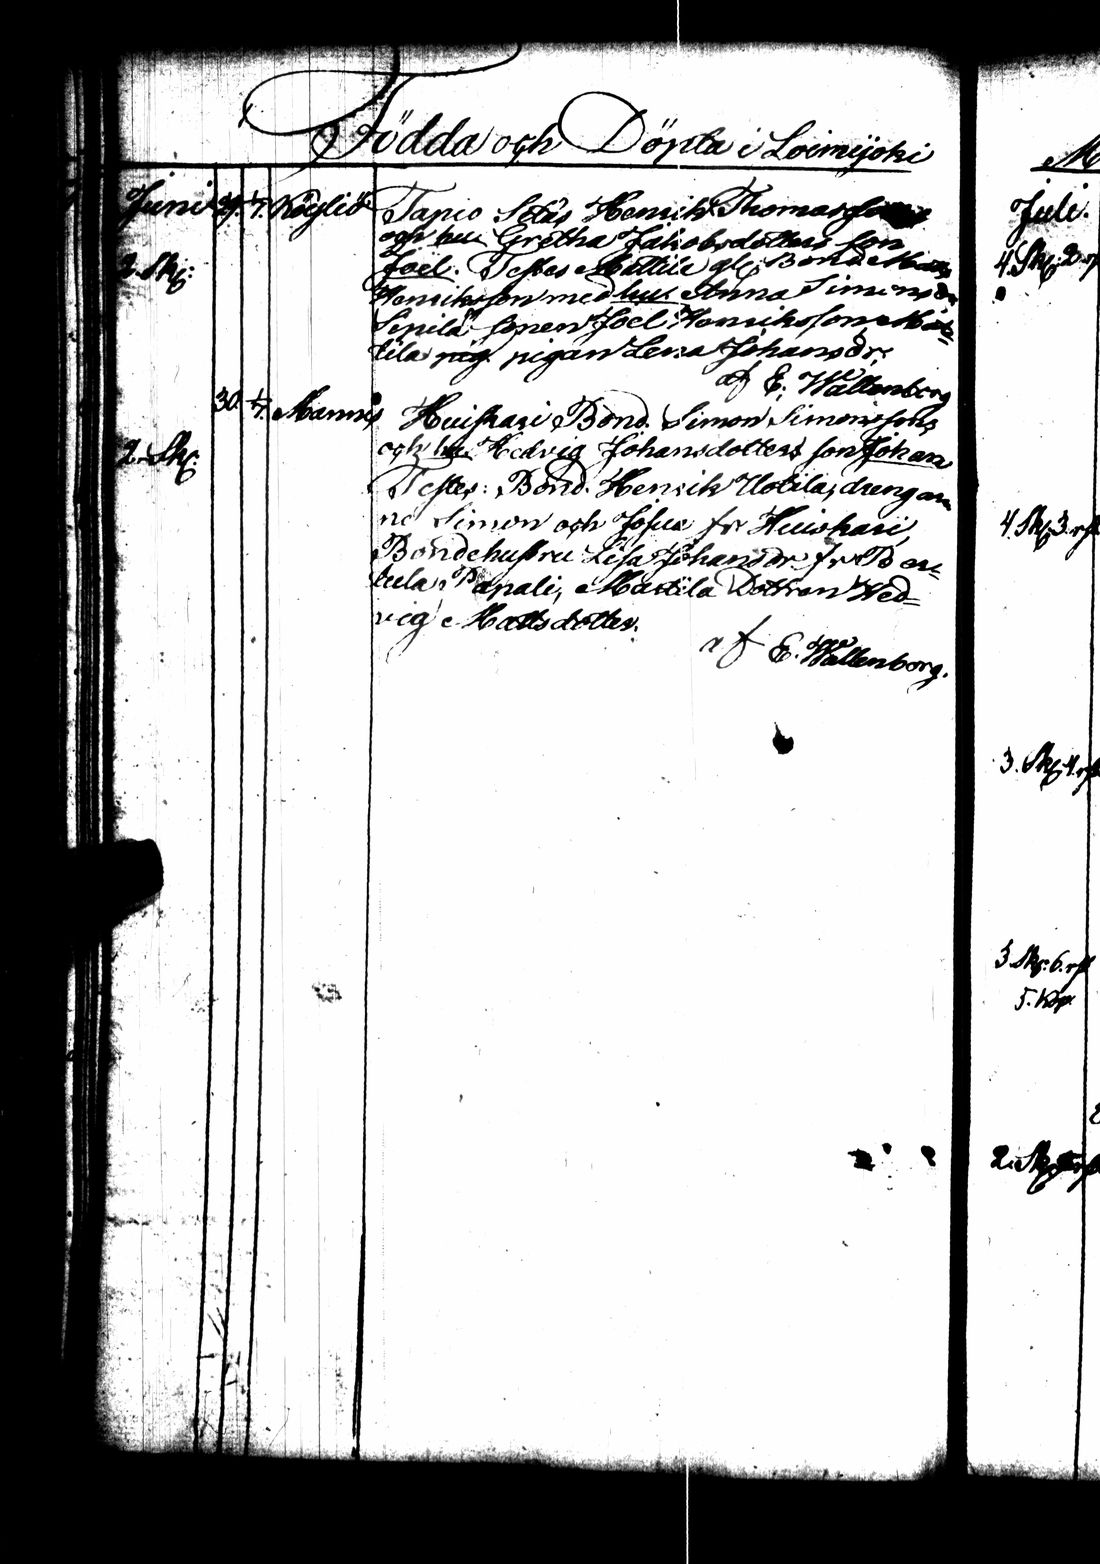 Födda och Döpta i Loimijoki
Juni 29. 1/7. Kjeyliö Tapio Sqtås Henrik Thomas
och hu Gretha Jakobsdotters son
2. Sk: Joel. Testes Mattila gl. Bond. Matts
Henriksson med hus Anna Simonsdr
Seppilä sonen Joel Henriksson, Mat=
tila pigan Lena Johansdr,
af E. Wallenborg
30. 1/7. Mannis Huiskari Bond. Simon Simonssons
och hu Hedvig Johansdotters son Johan
2. Sk: Testes: Bond. Henrik Uotila, drengar
ne Simon och Josua fr Huiskari,
Bondehustru Lisa Johansdr fr
tula Mattila Dottren Hed=
vig Mattsdotter.
af E. Wallenborg.
Juli.
4. Sk: 2. r
4 Sk: 3. r
3. Sk: 4. r
3 Sk: 6. r
5. Kop
2. Sk